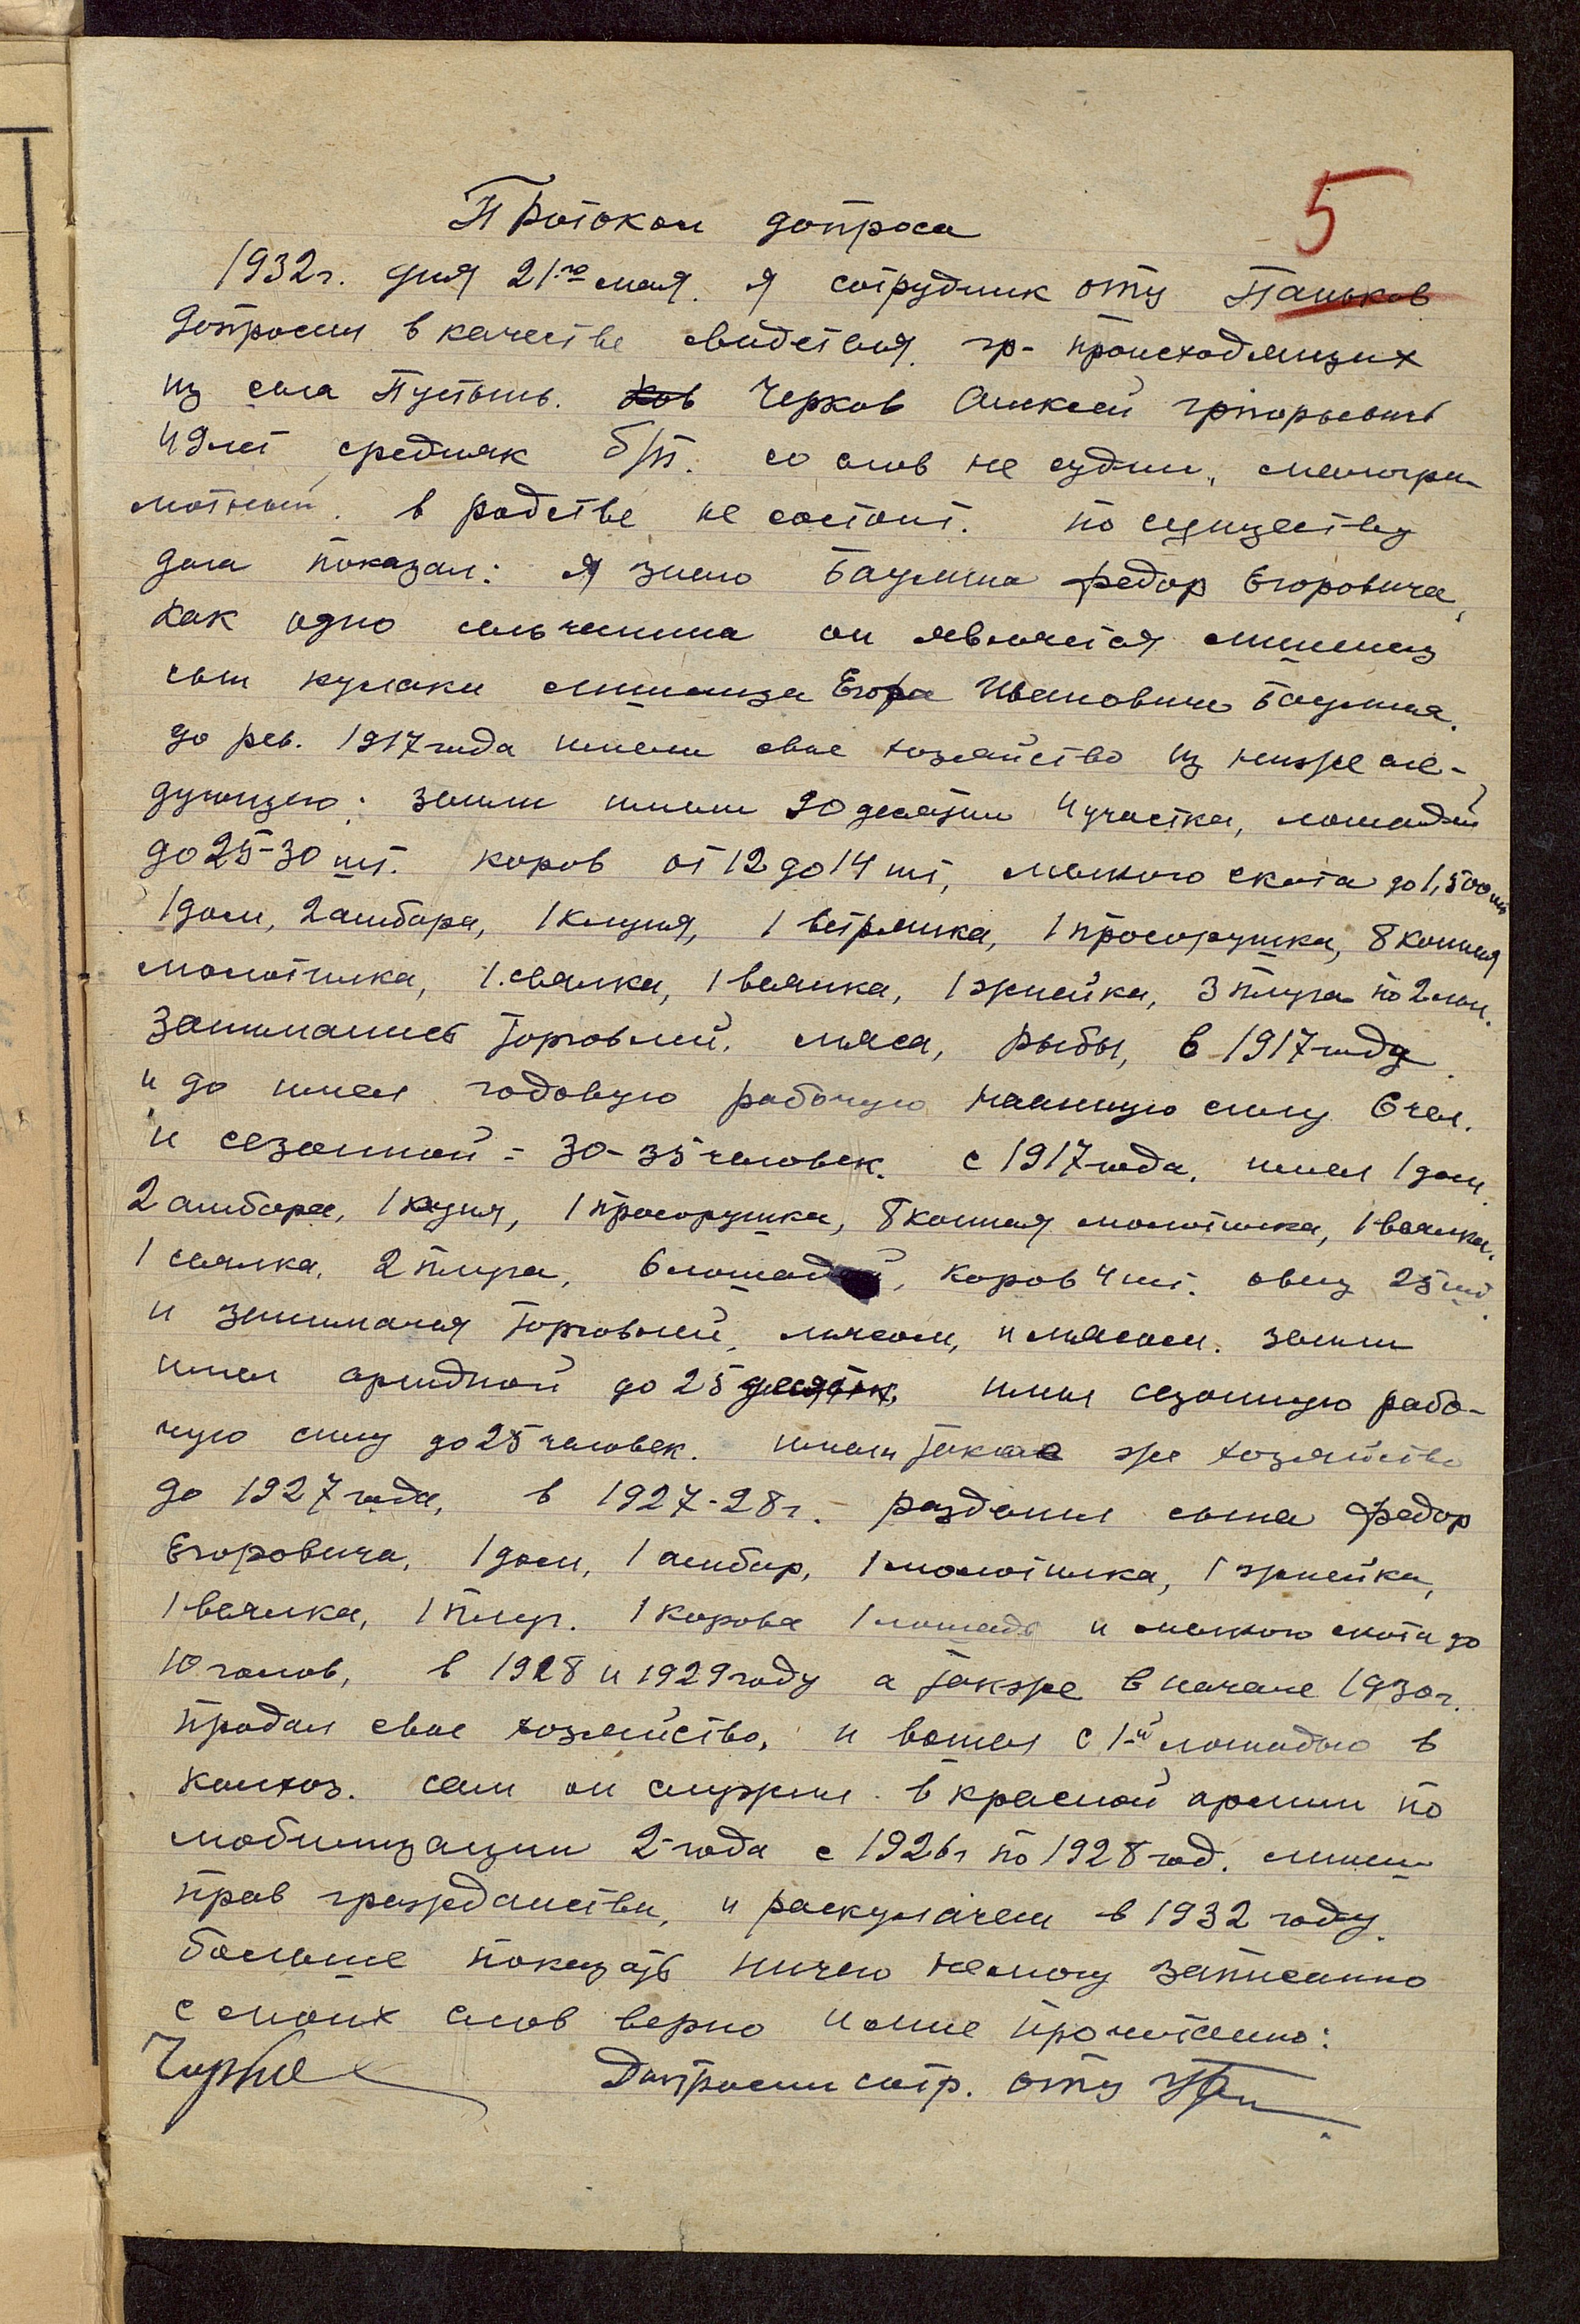 5
Протокол допроса
1932г. дня 21го мая. я сотрудник опту Паньков
допросил в качестве свидетеля. гр- происходящих
из села Пустынь. Ков Чержов Алексей григорьевич
49 лет средняк б/п. со слов не судим, малогра-
мотный. в родстве не состоит. по существу
дела показал: я знаю Баулина Федор Егоровича,
как одно сельчанина он является лишенец
сын кулака лишенца Егора Ивановича Баулина.
до рев. 1917 года имели свое хозяйство из ниже сле-
дующего: земли имели 20 десятин 4 участка, лошадей
до 25-30 шт. коров от 12 до 14 шт, мелкого скота до 1,500 шт
1 дом, 2 амбара, 1 клуня, 1 ветрянка, 1 просорушка, 8 конная
молотилка, 1. сеялка, 1 веялка, 1 жнейка, 3 плуга по 2 лем.
занимались торговлей. мяса, рыбы, в 1917 году
и до имел годовую рабочую наемную силу 6 чел.
и сезонной = 30-35 человек. с 1917 года. имел 1 дом.
2 амбара, 1 куня, 1 просорушка, 8 конная молотилка, 1 веялка.
1 сеялка, 2 плуга, 6 лошадей, коров 4 шт. овец 25 шт.
и занимался торговлей, мясом, и мясом. земли
имел арндной до 25 десятин, имел сезонную рабо-
чую силу до 25 человек. имели такое же хозяйство
до 1927 года, в 1927-28 г. разделил сына Федор
Егоровича, 1 дом, 1 амбар, 1 молотилка, 1 жнейка,
1 веялка, 1 плуг. 1 корова 1 лошадь и мелкого скота до
10 голов, в 1928 и 1929 году а также в начале 1930 г.
продал свое хозяйство, и вошел с 1-й лошадью в
колхоз. сам он служил в красной армии по
мобилизации 2-года с 1926 г по 1928 год. лишен
прав гражданства, и раскулачен в 1932 году.
больше показать ничего немогу записанно
с моих слов верно и мне прочитанно:
Допросил сотр. опту